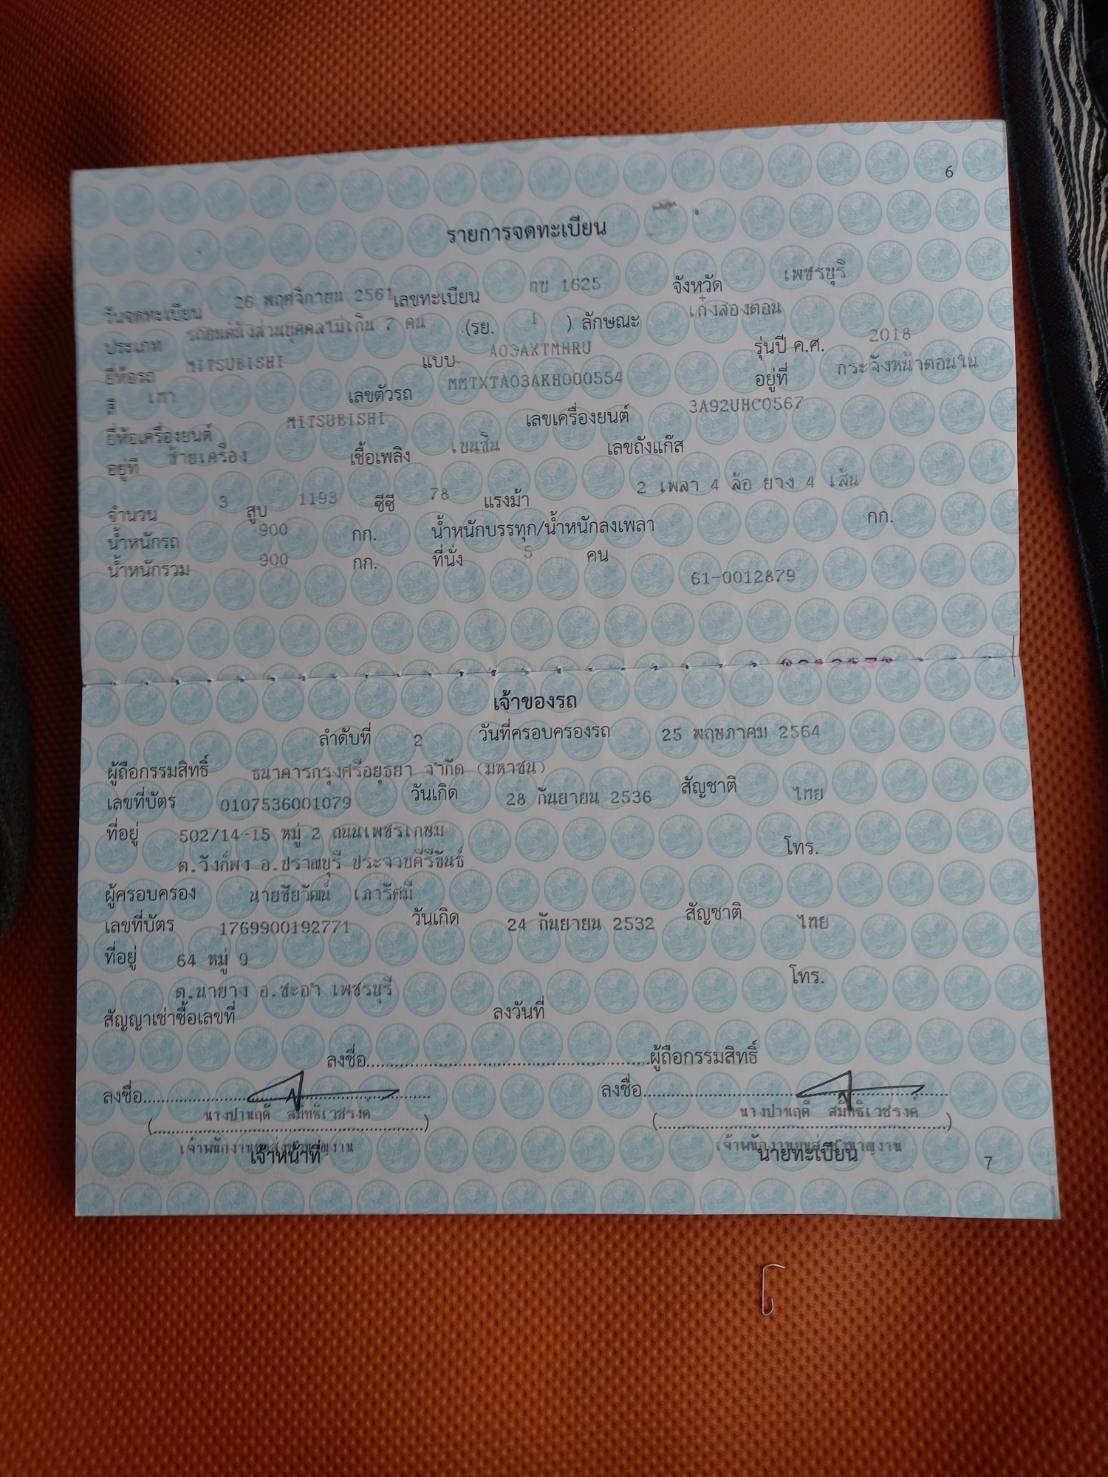 6
รายการจดทะเบียน
วันจดทะเบียน 26 พฤศจิกายน 2561 เลขทะเบียน 1625 จังหวัด เพชรบุรี
ประเภท รถยนต์นั่งส่วนบุคคลไม่เกิน 7 คน (รย. 1 ) ลักษณะ เก๋งสองตอน
ยี่ห้อรถ MITSUBISHI แบบ A03AXTMHRU รุ่นปี ค.ศ. 2018
สี เทา เลขตัวรถ MMTXTA03AKH000554 อยู่ที่ กระจังหน้าตอนใน
ยี่ห้อเครื่องยนต์ MITSUBISHI เลขเครื่องยนต์ 3A92UHC0567
อยู่ที่ ซ้ายเครื่อง เชื้อเพลิง เบนซิน เลขถังแก๊ส
จำนวน 3 สูบ 1193 ซีซี 78 แรงม้า 2 เพลา 4 ล้อ ยาง 4 เส้น
น้ำหนักรถ 900 กก. น้ำหนักบรรทุก/น้ำหนักลงเพลา กก.
น้ำหนักรวม 900 กก. ที่นั่ง 5 คน
61-0012879
เจ้าของรถ
ลำดับที่ 2 วันที่ครอบครองรถ 25 พฤษภาคม 2564
ผู้ถือกรรมสิทธิ์ ธนาคารกรุงศรีอยุธยา จำกัด (มหาชน)
เลขที่บัตร 0107536001079 วันเกิด 28 กันยายน 2536 สัญชาติ ไทย
ที่อยู่ 502/14-15 หมู่ 2 ถนนเพชรเกษม
ต.วังก์พง อ.ปราณบุรี ประจวบคีรีขันธ์ โทร.
ผู้ครอบครอง นายชัยวัฒน์ เภารัศมี
เลขที่บัตร 1769900192771 วันเกิด 24 กันยายน 2532 สัญชาติ ไทย
ที่อยู่ 64 หมู่ 9
ต.นายาง อ.ชะอำ เพชรบุรี โทร.
สัญญาเช่าซื้อเลขที่ ลงวันที่
ลงชื่อ........................ผู้ถือกรรมสิทธิ์
ลงชื่อ........................ ลงชื่อ........................
เจ้าหน้าที่ นายทะเบียน
7